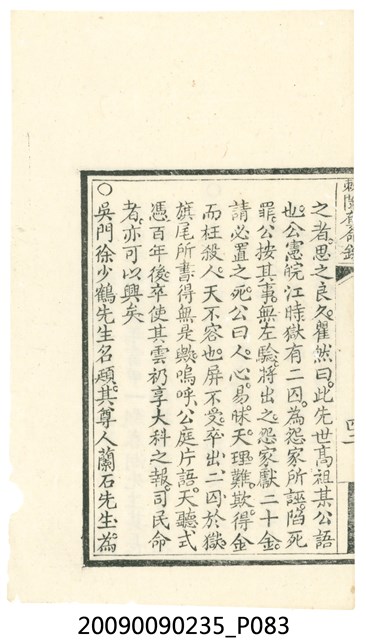 之者思之良久瞿然曰此先世髙祖某公語
也公憲皖江時獄有二囚為怨家所誣陷死
罪公按其事無左驗將出之怨家獻二十金
請必置之死公曰人心易昧天理難欺得金
而枉殺人天不容也屏不受卒出二囚於獄
旗尾所書得無是歟嗚呼公庭片語天聽式
憑百年後卒使其雲礽享大科之報司民命
者亦可以興矣
○
吳門徐少鶴先生名頲其尊人蘭石先生為
20090090235_P083